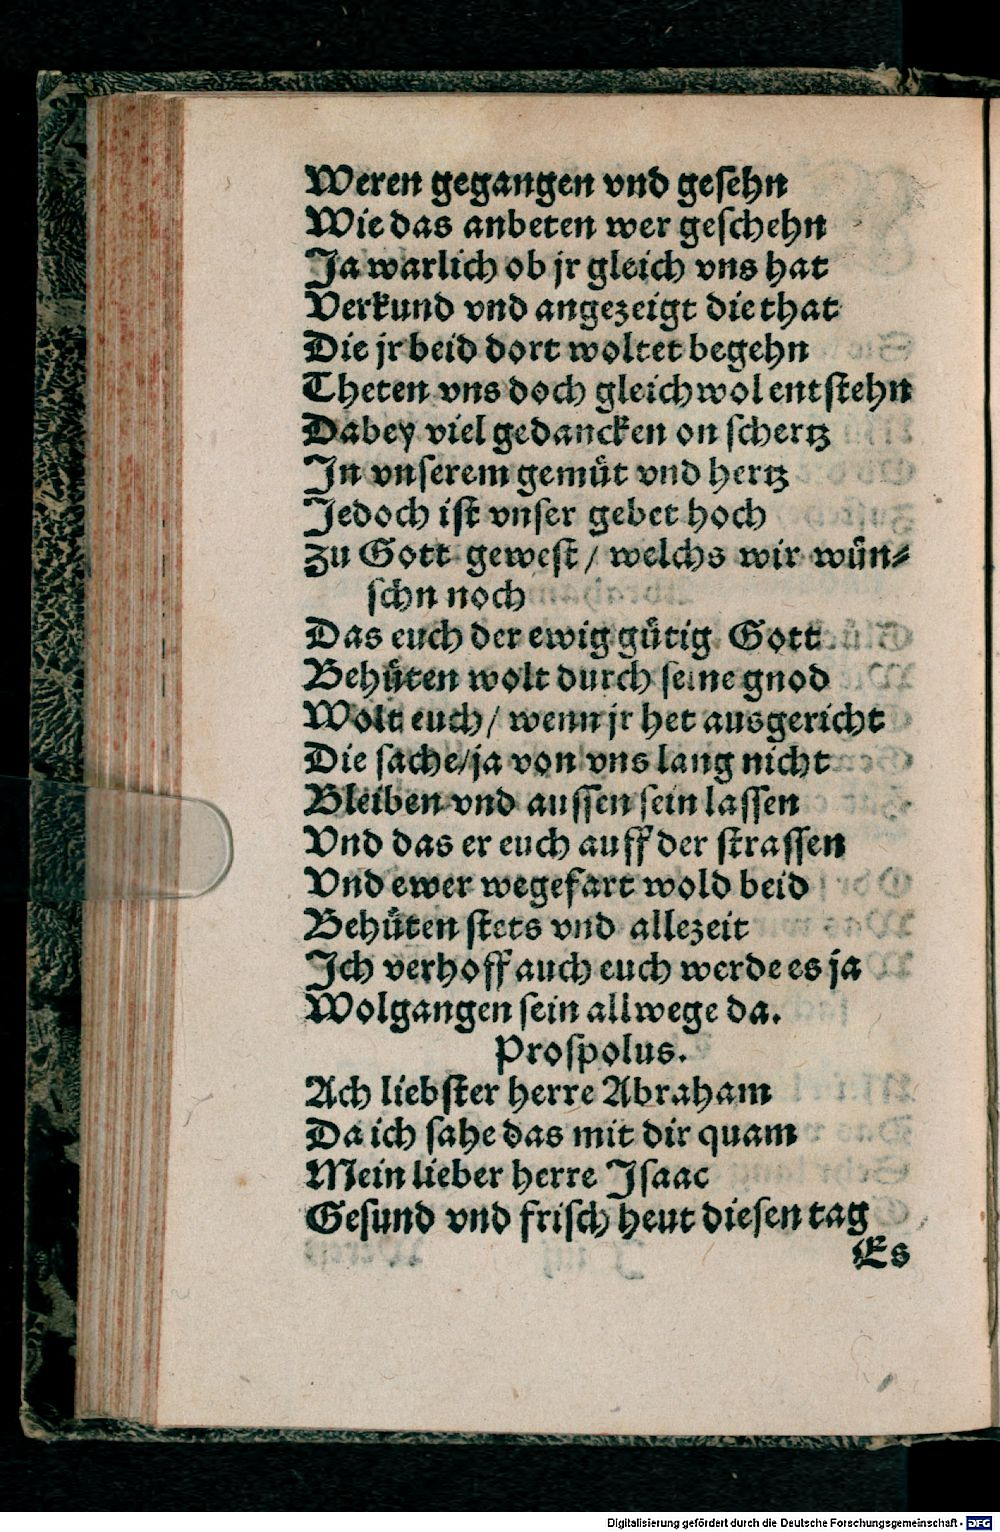 Weren gegangen vnd gesehn
Wie das anbeten wer geschehn
Ja warlich ob jr gleich vns hat
Verkund vnd angezeigt die that
Die jr beid dort woltet begehn
Theten vns doch gleichwol entstehn
Dabey viel gedancken on schertz
In vnserem gemüt vnd hertz
Jedoch ist vnser gebet hoch
zu Gott gewest / welchs wir wün-
schn noch
Das euch der ewig gütig Gott
Behüten wolt durch seine gnod
Wolt euch / wenn jr het ausgericht
Die sache / ja von vns lang nicht
Bleiben vnd aussen sein lassen
Vnd das er euch auff der strassen
Vnd ewer wegefart wold beid
Behüten stets vnd allezeit
Ich verhoff auch euch werde es ja
Wolgangen sein allwege da.
Prospolus.
Ach liebster herre Abraham
Da ich sahe das mit dir quam
Mein lieber herre Isaac
Gesund vnd frisch heut diesen tag
Es
Digitalisierung gefördert durch die Deutsche Forschungsgemeinschaft - DFG